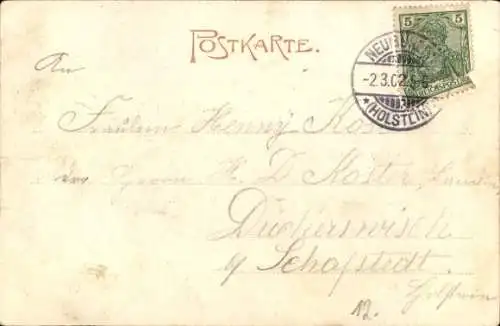 POSTKARTE.
5 5
-2.3.02.
*(HOLSTEIN)
An
Fräulein Henny
H. D. Koster,
Dückerswisch
b/ Schafstedt.
Holstein
12.